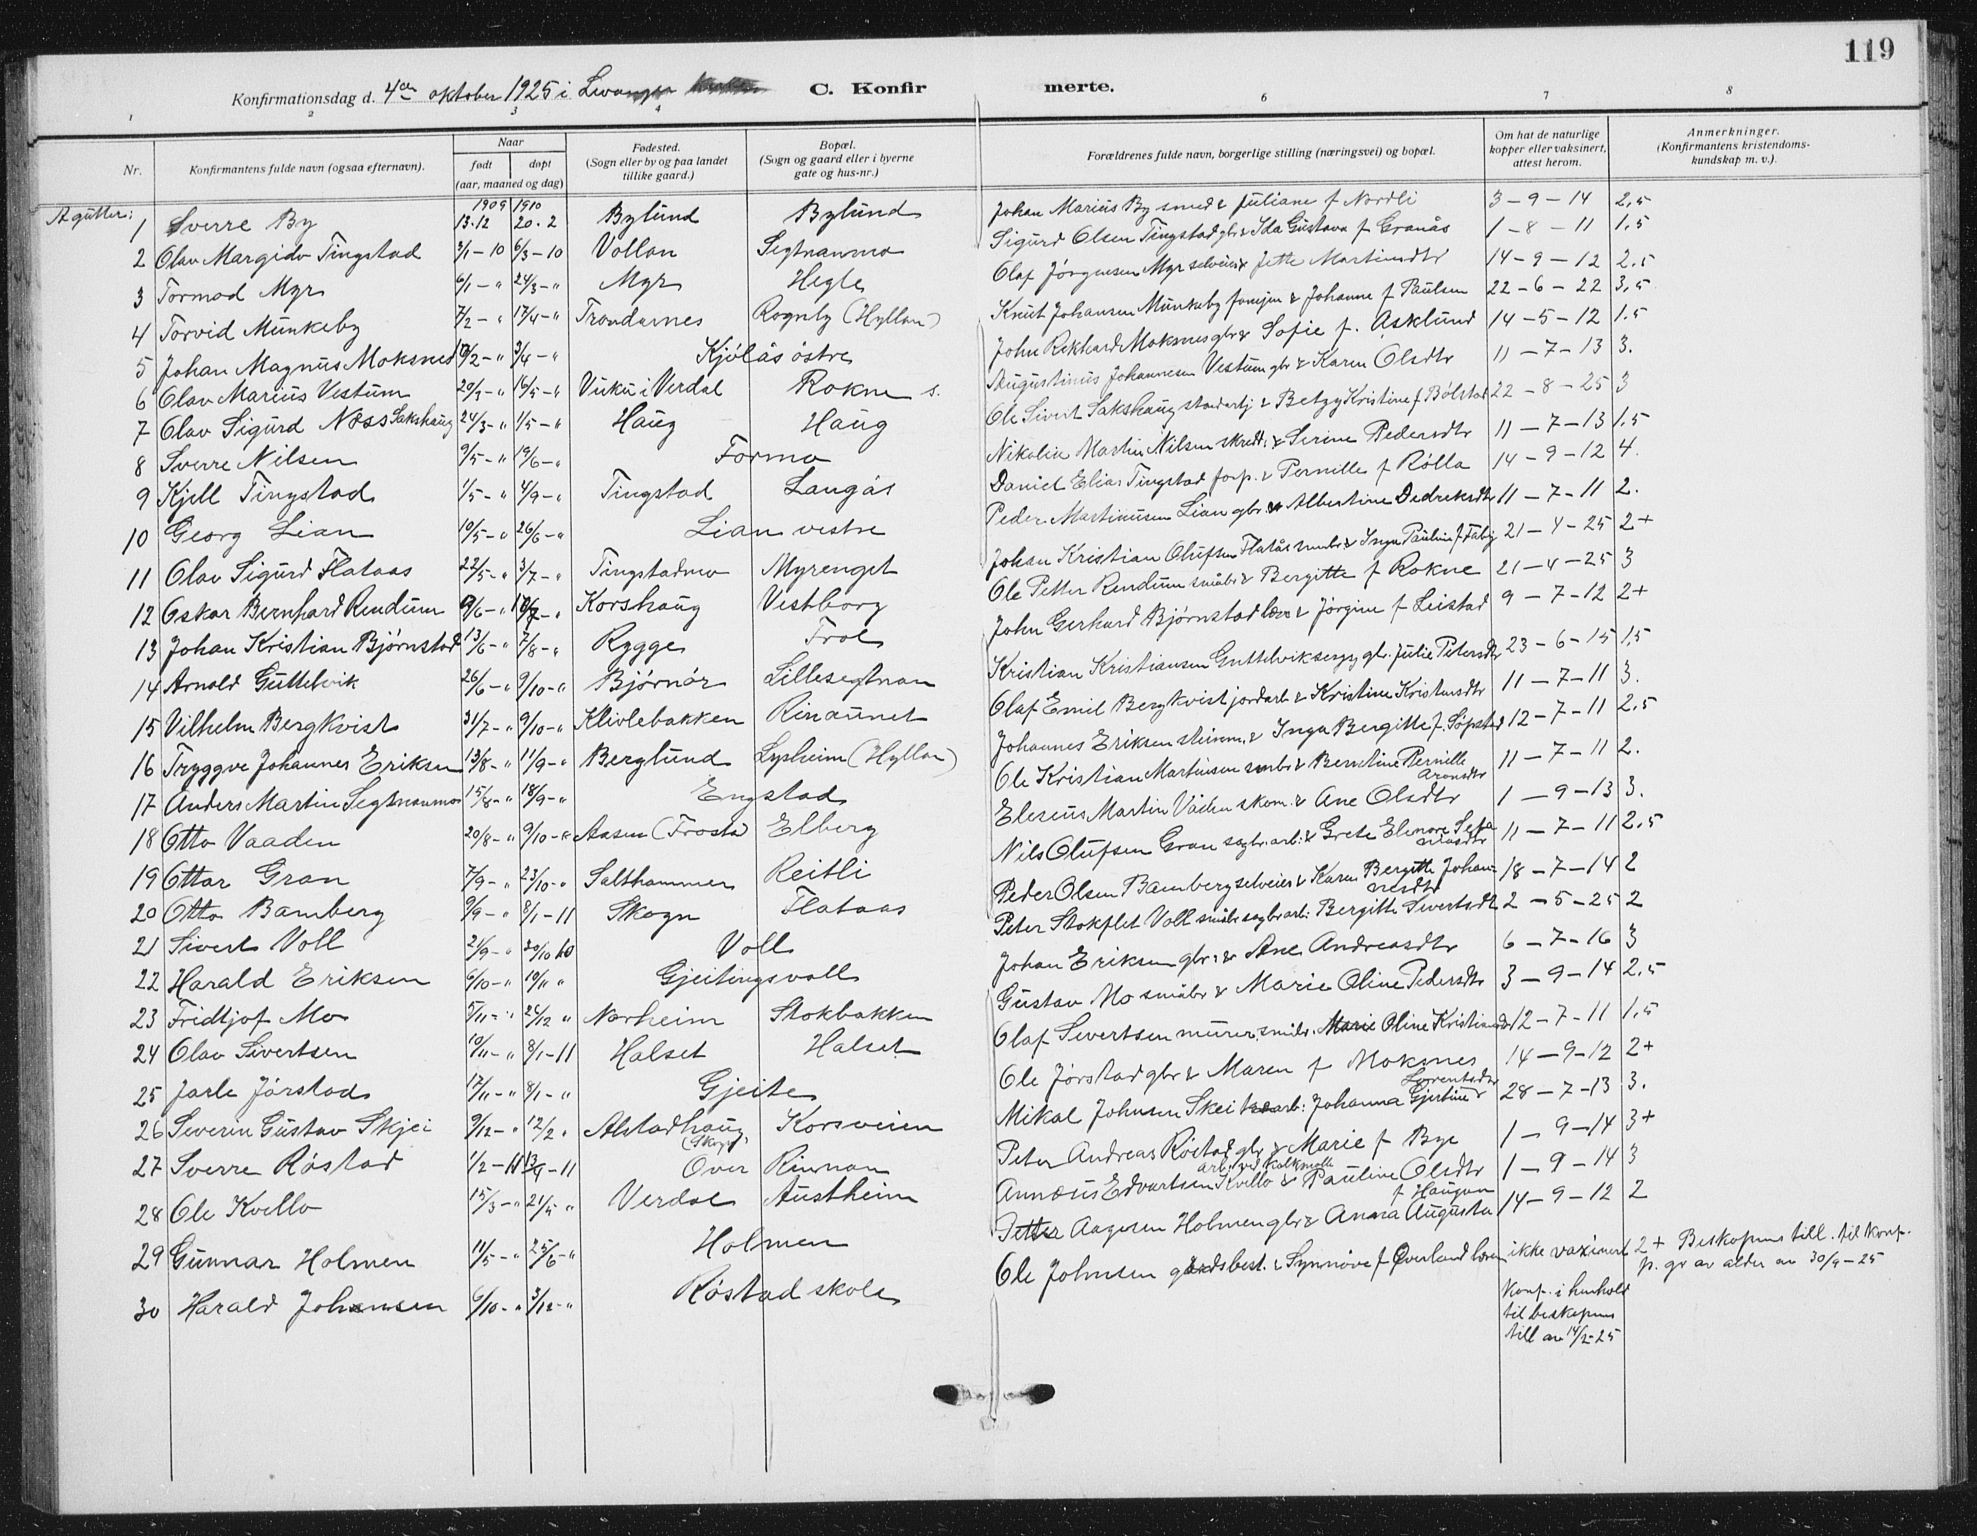 119
Konfirmationsdag d. 4de oktober 1925 i Levanger C. Konfirmerte.
1 2 3 4 6 7 8
Nr. Konfirmantens fulde navn (ogsaa efternavn). Naar født døpt (aar, maaned og dag) Fødested. (Sogn eller by og paa landet tillike gaard.) Bopæl. (Sogn og gaard eller i byerne gate og hus-nr.) Forældrenes fulde navn, borgerlige stilling (næringsvei) og bopæl. Om hat de naturlige kopper eller vaksinert, attest herom. Anmerkninger. (Konfirmantens kristendomskundskap m. v.).
A gutter: 1909 1910
1 Sverre By 13.12 20.2 Bylund Bylund Johan Marius By smed & Juliane f Nordli 3-9-14 2,5
2 Olav Margido Tingstad 3/1-10 6/3-10 Vollan Segtnanmo Sigurd Olsen Tingstad gbr & Ida Gustava f Granås 1-8-11 1.5
3 Tormod Myr 6/1-" 24/3-" Myr Hegle Olaf Jörgensen Myr selveier & Jette Martinsdtr 14-9-12 2.5
4 Torvid Munkeby 7/2-" 17/4-" Trondarnes Rognly (Hyllan) Knut Johansen Munkeby & Johanne f Paulsen 22-6-22 3,5
5 Johan Magnus Moksnes 3/4-" Kjölås östre John Rikhard Moksnes gbr & Sofie f. Asklund 14-5-12 1.5
6 Olav Marius Vestum 16/5-" Vuku i Verdal Rokne s. Augustinus Johannesen Vestum gbr & Karen Olsdtr 11-7-13 3.
7 Olav Sigurd Næss Sakshaug 24/3-" 1/5-" Haug Haug Ole Sivert Sakshaug & Betzy Kristine f Bölstad 22-8-25 3
8 Sverre Nilsen 9/5-" 19/6-" Formo Nikolai Martin Nilsen skredd. & Serine Pedersdtr 11-7-13 1.5
9 Kjell Tingstad 1/5-" 4/9-" Tingstad Langås Daniel Elias Tingstad forp. & Pernille f Rölla 14-9-12 4.
10 Georg Lian 10/5-" 26/6-" Lian vestre Peder Martinusen Lian gbr & Albertine Dedreksdtr 11-7-11 2.
11 Olav Sigurd Flataas 22/5-" 3/7-" Tingstadmo Myrenget Johan Kristian Olufsen Flatås smbr & Inga Pauline f Faby 21-4-25 2+
12 Oskar Bernhard Rendum 9/6-" Korshaug Vestborg Ole Petter Rendum småbr & Bergitte f Rokne 21-4-25 3
13 Johan Kristian Bjørnstad 13/6-" 7/8-" Rygge Frol John Gerhard Bjørnstad lærer & Jörgine f Leistad 9-7-12 2+
14 Arnold Guttelvik 26/6-" 9/10-" Bjørnör Lillesegtnan Kristian Kristiansen Guttelvik gbr. Julie Petersdtr 23-6-15 1,5
15 Vilhelm Bergkvist 31/7-" 9/10-" Klivlebakken Rinaunet Olaf Emil Bergkvist jordarb & Kristine Kristensdtr 11-7-11 3.
16 Tryggve Johannes Eriksen 13/8-" 11/9-" Berglund Lysheim (Hyllan) Johannes Eriksen & Inga Bergitte f. Söpstad 12-7-11 2.5
17 Anders Martin Segtnanmo 15/8-" 18/9-" Engstad Ole Kristian Martinsen smbr & Berntine Pernille Aronsdtr 11-7-11 2.
18 Otto Vaaden 20/8-" 9/10-" Aasen (Frosta) Elberg Eleseus Martin Våden skom. & Ane Olsdtr 1-9-13 3.
19 Ottar Gran 7/9-" 23/10-" Salthammer Reitli Nils Olufsen Gran sagbr.arb: & Grete Elenore 11-7-11 2.5
20 Otto Bamberg 9/9-" 8/1-11 Skogn Flataas Peder Olsen Bamberg selveier & Karen Bergitte Johannesdtr 18-7-14 2
21 Sivert Voll 24/9-" 30/10 10 Voll Peter Stokflet Voll småbr sagbrarb: Bergitte Sivertsdtr 2-5-25 2
22 Harald Eriksen 6/10-" 19/11 " Gjeitingsvoll Johan Eriksen gbr: & Ane Andreasdtr 6-7-16 3
23 Fridtjof Mo 5/11-" 26/12 " Norheim Stokbakken Gustav Mo småbr & Marie Oline Pedersdtr 3-9-14 2,5
24 Olav Sivertsen 10/11-" 8/1-11 Halset Halset Olaf Sivertsen murer, småbr. Marie Oline Kristiansdtr 12-7-11 1.5
25 Jarle Jörstad 17/11-" 8/1-" Gjeite Ole Jörstad gbr & Maren f Moksnes 14-9-12 2+
26 Severin Gustav Skjei 9/12-" 12/2 " Alstadhaug (Skogn) Korsveien Mikal Johnsen Skei arb: Johanna Gjertine Lorentsdtr 28-7-13 3.
27 Sverre Röstad 1/2-11 13/9-11 Over Rinnan Peter Andreas Röstad gbr & Marie f Bye 1-9-14 3+
28 Ole Kvello 15/3-" 21/5 " Verdal Austheim Annæus Edvartsen Kvello arb. ved kalkmølle & Pauline Olsdtr 1-9-14 3
29 Gunnar Holmen 11/5-" 25/6-" Holmen Petter Aagesen Holmen gbr & Anna Augusta f Haugan 14-9-12 2
30 Harald Johansen 6/10-" 3/12-" Röstad skole Ole Johnsen gårdsbest. & Synnöve f Överland lærer ikke vaxinert 2+ Biskopens till. til konf. p. gr av alder av 30/9-25
Konf. i henhold
til biskopens
till av 14/2-25